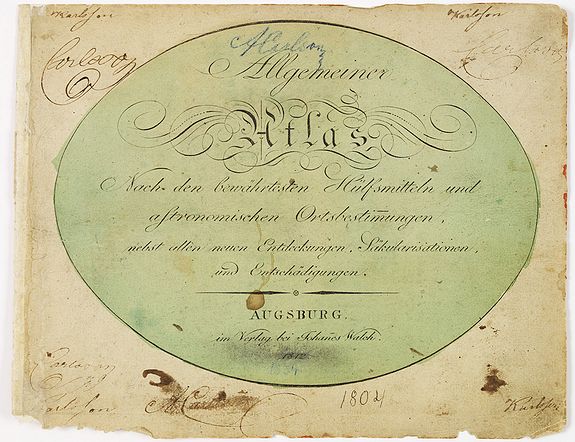 Karlsson
Karlsson
Carlsson
Carlsson
A Carlson
Allgemeiner
Atlas
Nach den bewährtesten Hülfsmitteln und
astronomischen Ortsbestim̄ungen,
nebst allen neuen Entdeckungen, Säkularisationen,
und Entschädigungen.
AUGSBURG.
im Verlag bei Johan̄es Walch.
1812
Carlsson
Carlsson
A Carls
1804
Karlsson